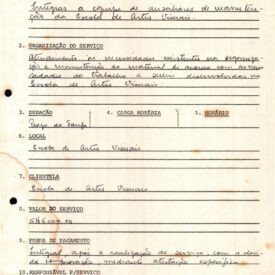 Integrar a equipe de auxiliares de manuten-
ção da Escola de Artes Visuais.
2. ORGANIZAÇÃO DO SERVIÇO
Atendimento às necessidades existentes na organiza-
ção e manutenção do material de acordo com as neces-
sidades do trabalho a serem desenvolvidas na
Escola de Artes Visuais.
3. DURAÇÃO
4. CARGA HORÁRIA
5. HORÁRIO
Prazo da Tarefa
6. LOCAL
Escola de Artes Visuais
7. CLIENTELA
Escola de Artes Visuais
8. VALOR DO SERVIÇO
9. FORMA DE PAGAMENTO
Integral, após a realização do serviço, com a devi-
da comprovação, mediante atestação específica
10. RESPONSÁVEL P/SERVIÇO